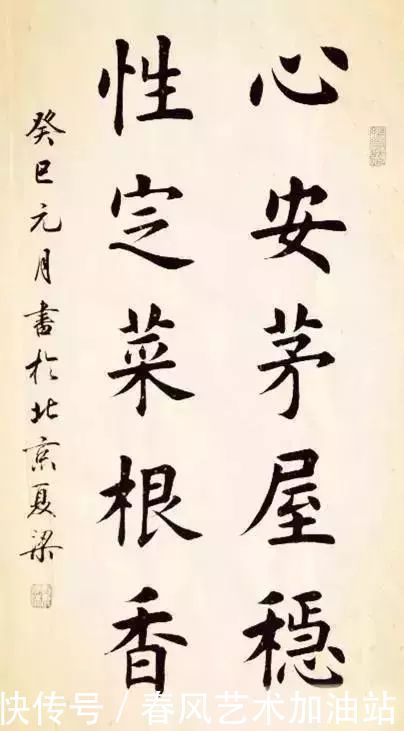 心安茅屋穏
性定菜根香
癸巳元月書於北京夏梁
快传号 / 春风艺术加油站